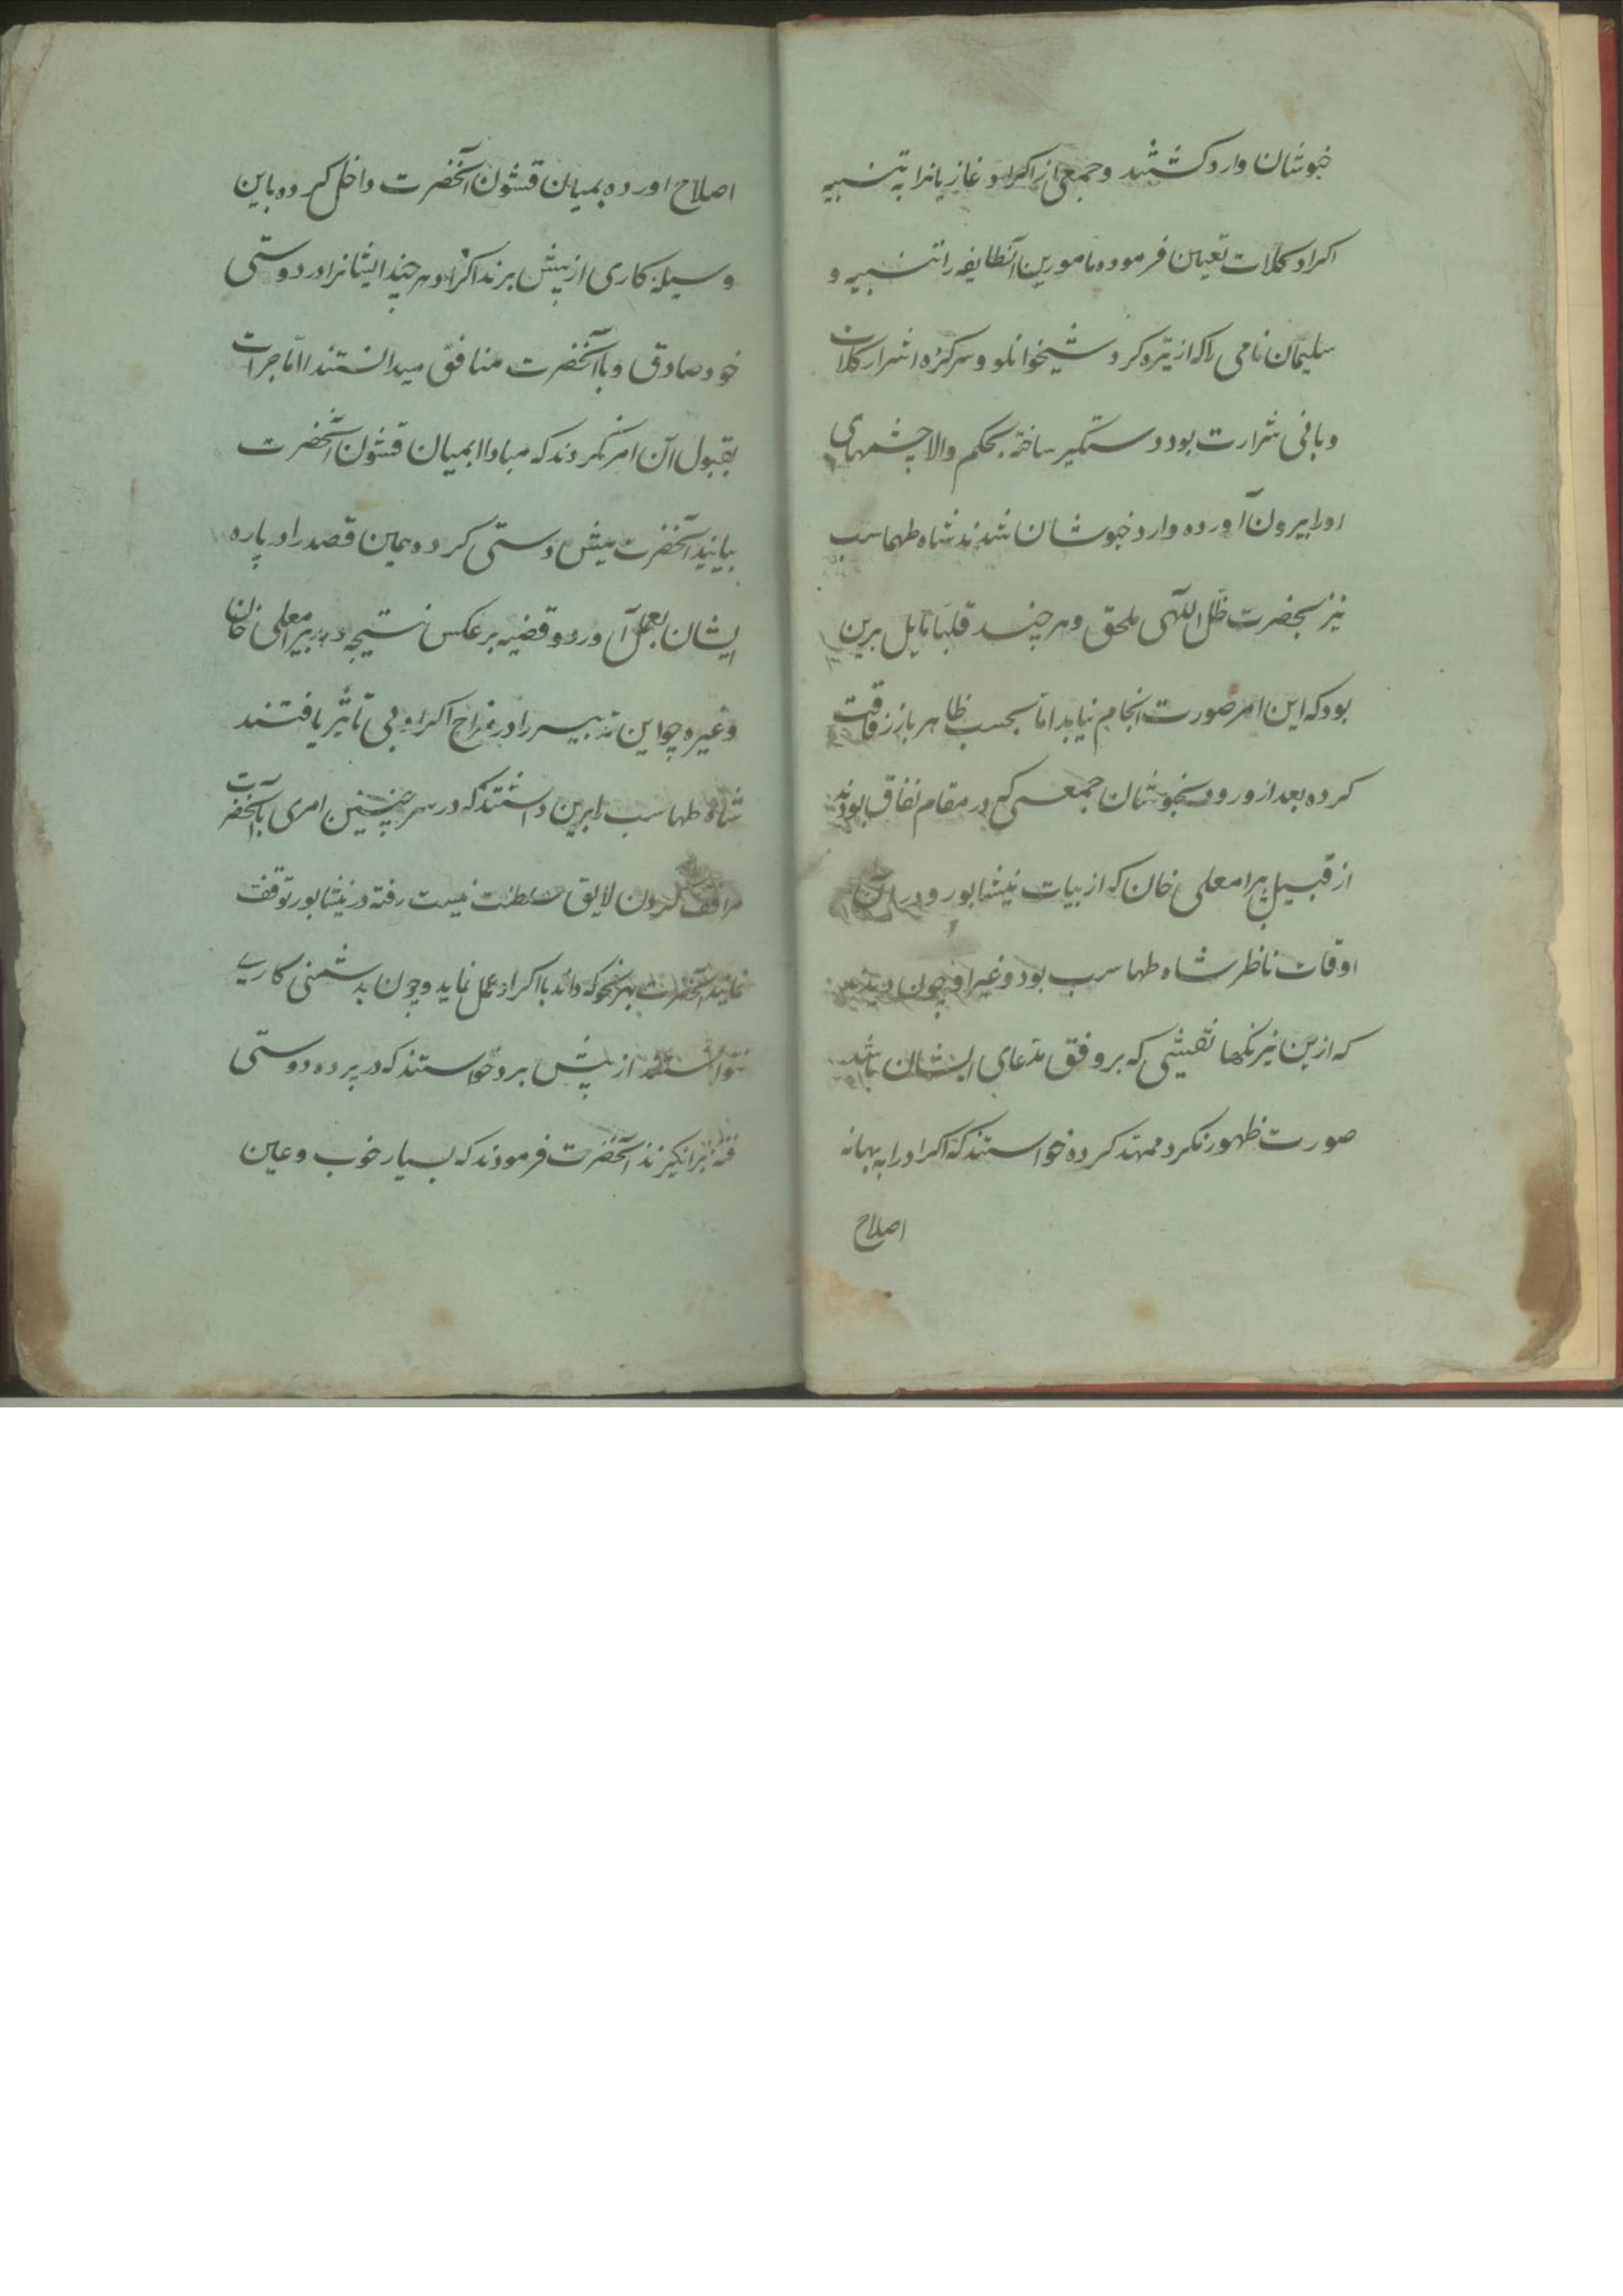 خبوشان وارد گشتند و جمعی از اکراد و غازیانرا به تنبیه
اکراد کلات تعیین فرموده مامورین آنطایفه را تنبیه و
سلیمان نامی را که از تیره کرد شیخوانلو و سرکرده اشرار کلات
و بانی شرارت بود دستگیر ساخته بحکم والا چشمهای
او را بیرون آورده وارد خبوشان شدند شاه طهماسب
نیز بحضرت ظل اللهی ملحق و هر چند قلبا مایل برین
بود که این امر صورت انجام نیابد اما بحسب ظاهر باز رفاقت
کرده بعد از ورود بخبوشان جمعی که در مقام نفاق بودند
از قبیل بیرامعلی خان که از بیات نیشابور و در آن
اوقات ناظر شاه طهماسب بود و غیر او چون دیدند
که ازین نیرنگها نقشی که بر وفق مدعای ایشان باشد
صورت ظهور نکرد ممهد کرده خواستند که اکراد را به بهانه
اصلاح
اصلاح اورده بمیان قشون آنحضرت داخل کرده باین
وسیله کاری از پیش برند اکراد هر چند ایشانرا در دوستی
خود صادق و با آنحضرت منافق میدانستند اما جرات
بقبول آن امر نکردند که مبادا بمیان قشون آنحضرت
بیایند آنحضرت پیش دستی کرده همین قصد را در باره
ایشان بعمل آورد و قضیه بر عکس نتیجه دهد بیرامعلی خان
و غیره چو این تدبیر را در مزاج اکراد بی تاثیر یافتند
شاه طهماسب را برین داشتند که در هر چنین امری با آنحضرت
موافقت کردن لایق سلطنت نیست رفته در نیشابور توقف
نمایند آنحضرت بهر نحو که داند با اکراد عمل نماید و چون بدشمنی کاری
نتوانستند از پیش برد خواستند که در پرده دوستی
فتنه برانگیزند آنحضرت فرمودند که بسیار خوب و عین